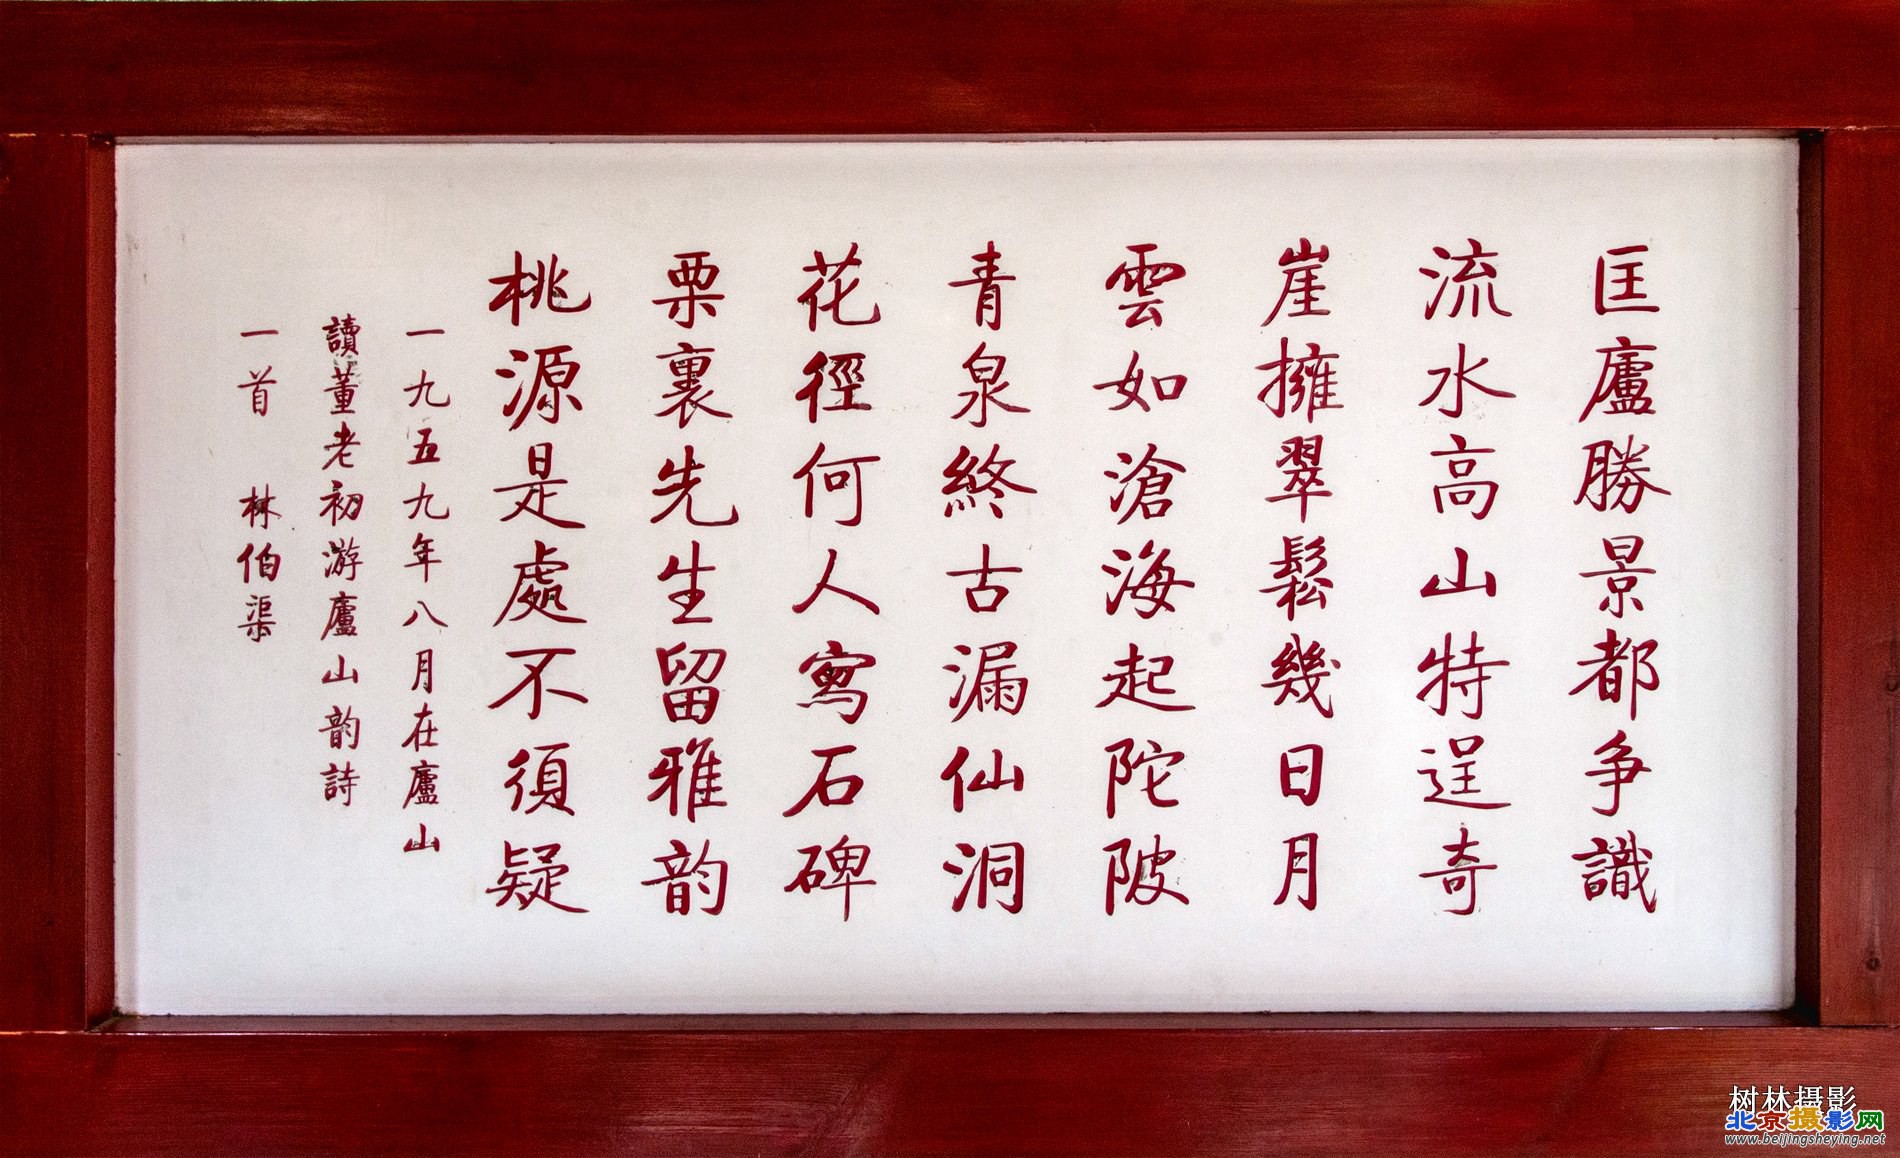 匡廬勝景都争識
流水高山特逞奇
崖擁翠鬆幾日月
雲如滄海起陀陂
青泉終古漏仙洞
花徑何人寫石碑
栗裏先生留雅韵
桃源是處不須疑
一九五九年八月在廬山
讀董老初游廬山韵詩
一首 林伯渠
树林摄影
北京摄影网
www.beijingsheying.net